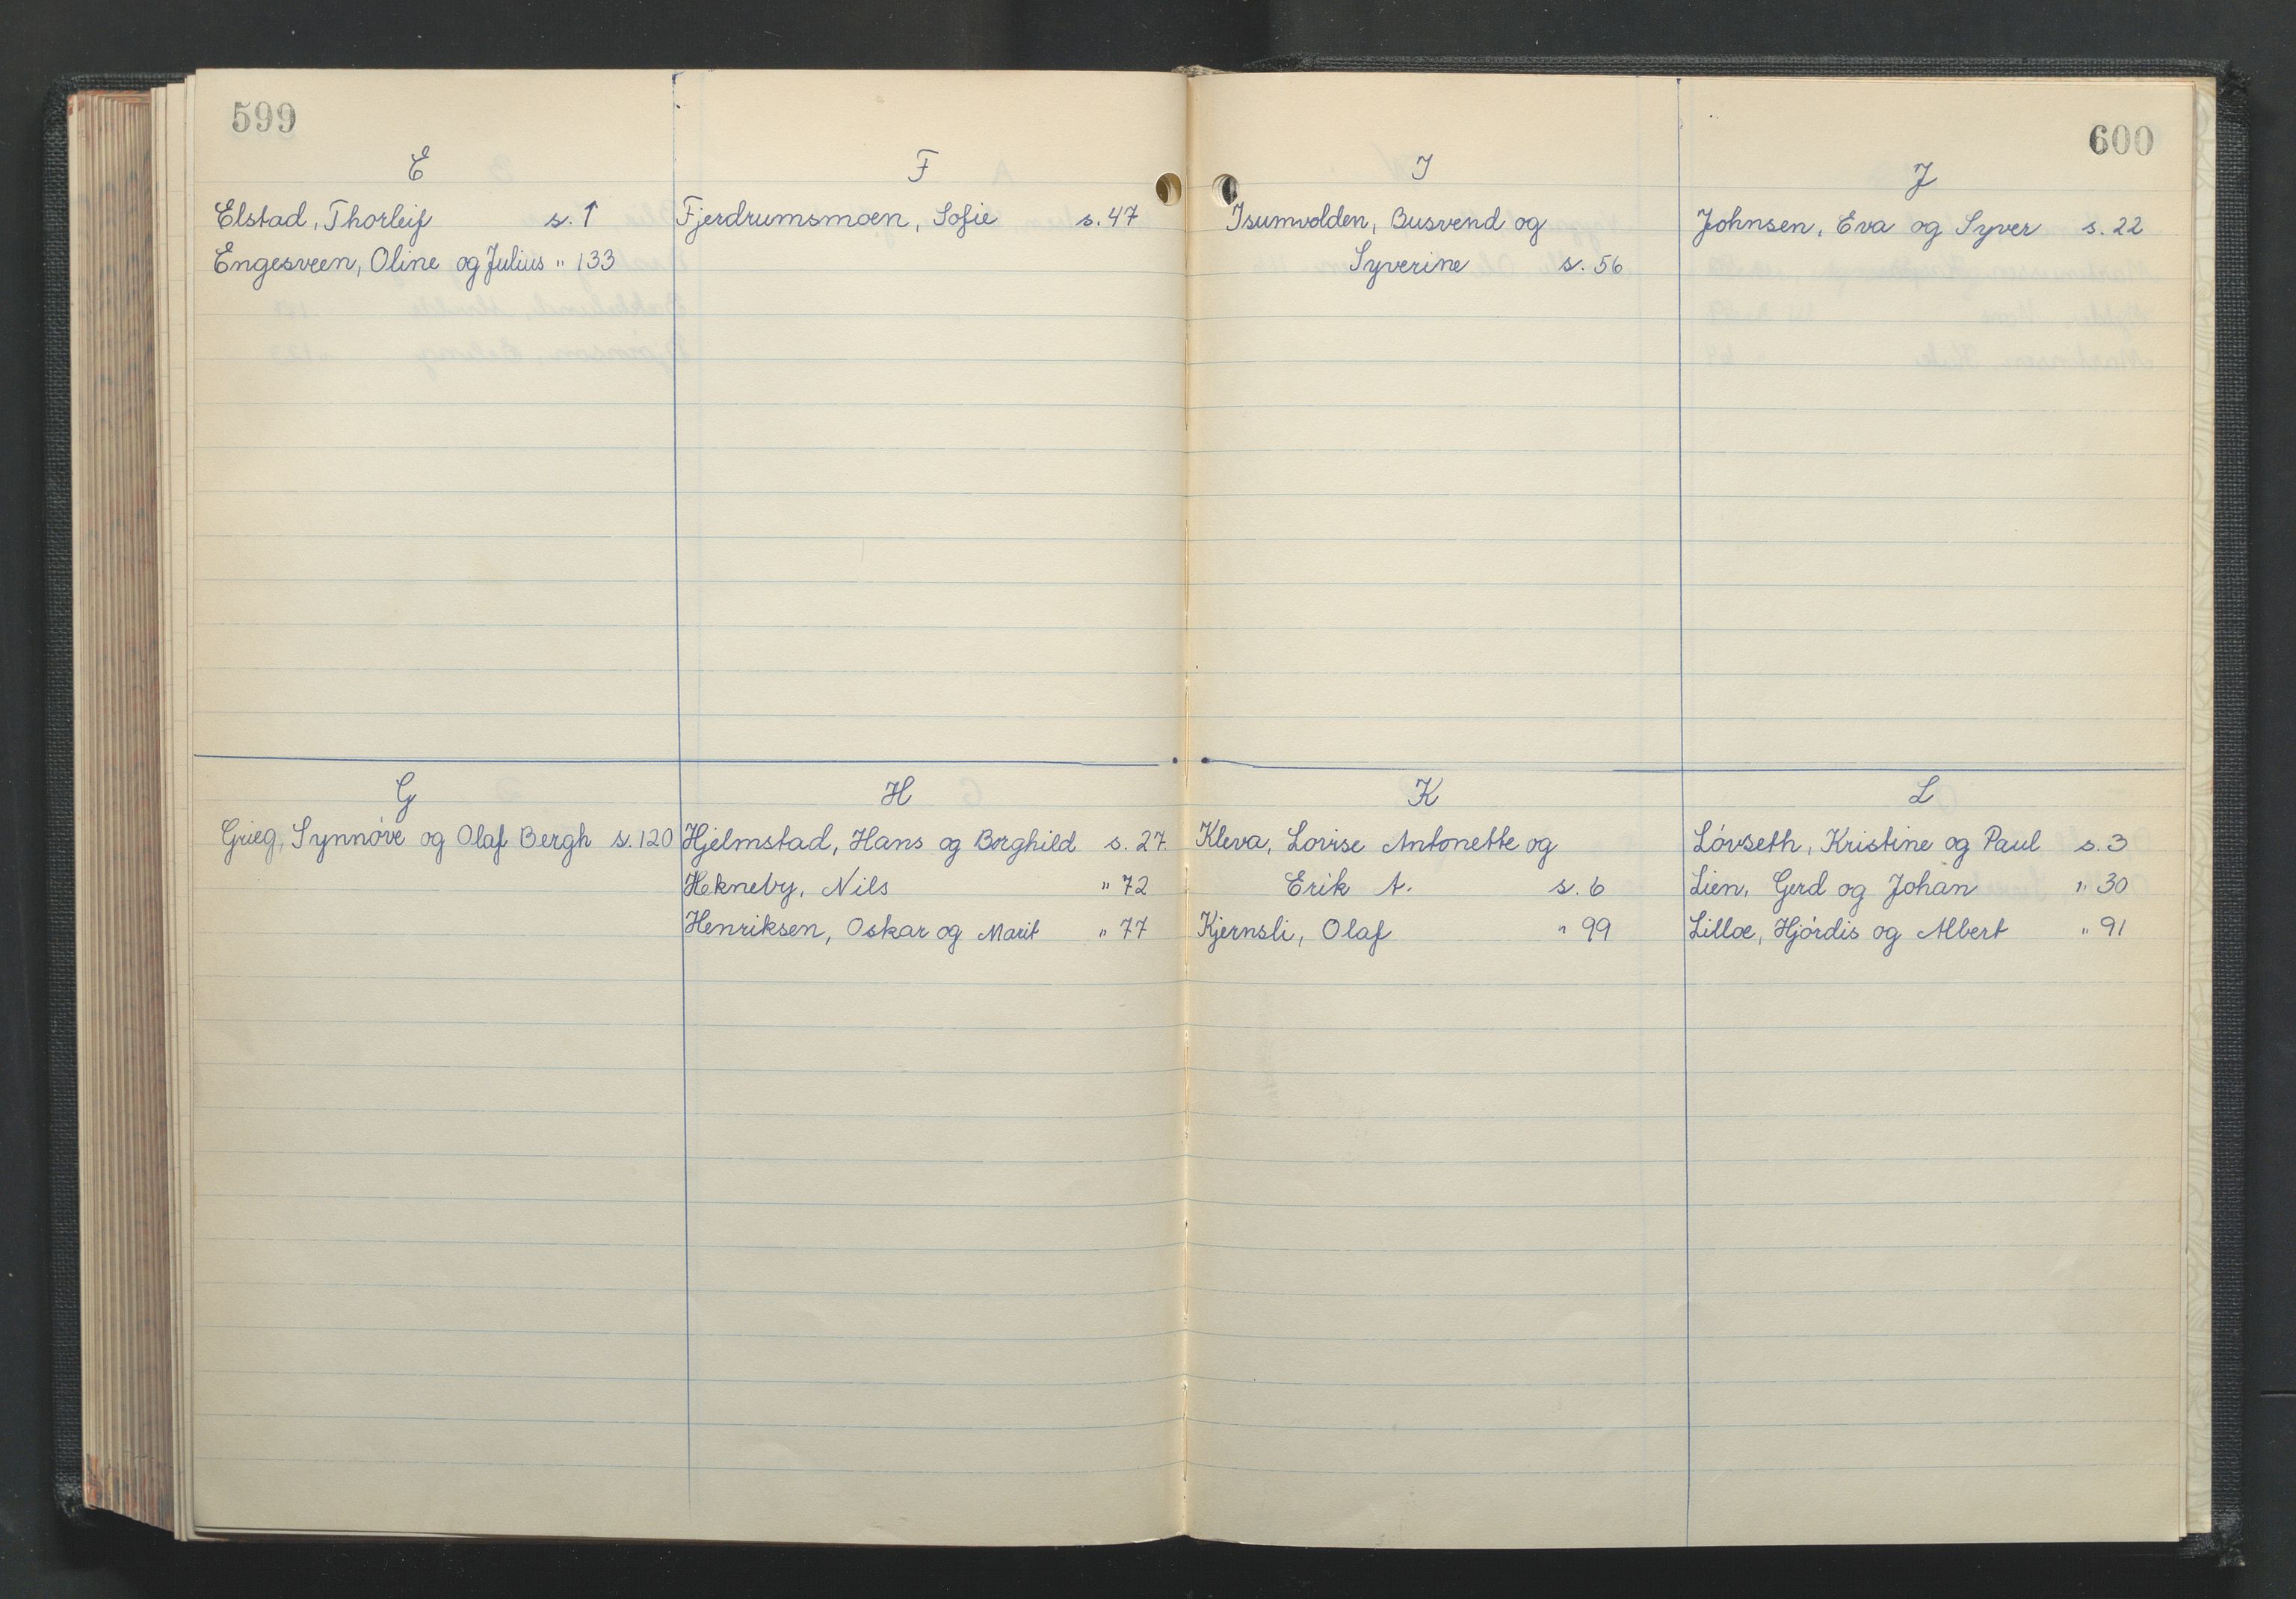 599
E
Elstad, Thorleif s. 1
Engesveen, Oline og Julius " 133
F
Fjerdrumsmoen, Sofie s. 47
G
Grieg, Synnóve og Olaf Bergh s. 120
H
Hjelmstad, Hans og Borghild s. 27.
Hekneby, Nils " 72
Henriksen, Oskar og Marit " 77
600
I
Isumvolden, Busvend og
Syverine s. 56
J
Johnsen, Eva og Syver s. 22
K
Kleva, Lovise Antonette og
Erik A. s. 6
Kjernsli, Olaf " 99
L
Lóvseth, Kristine og Paul s. 3
Lien, Gerd og Johan " 30
Lilloe, Hjórdis og Albert " 91